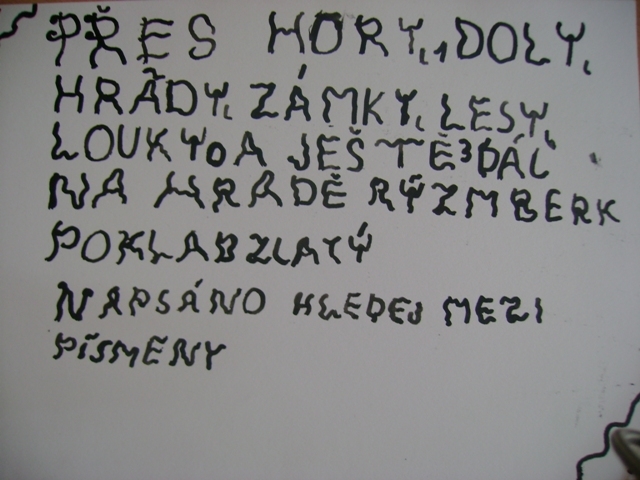 PŘES HORY,1DOLY,
HRÃDY, ZÁMKY, LESY,
LOUKY0A JĖŠTĖ3DÁL
NA HRADĚ RÝZMBERK
POKLADZLATÝ
NAPSÁNO HLEDEJ MEZI
PÍSMENY